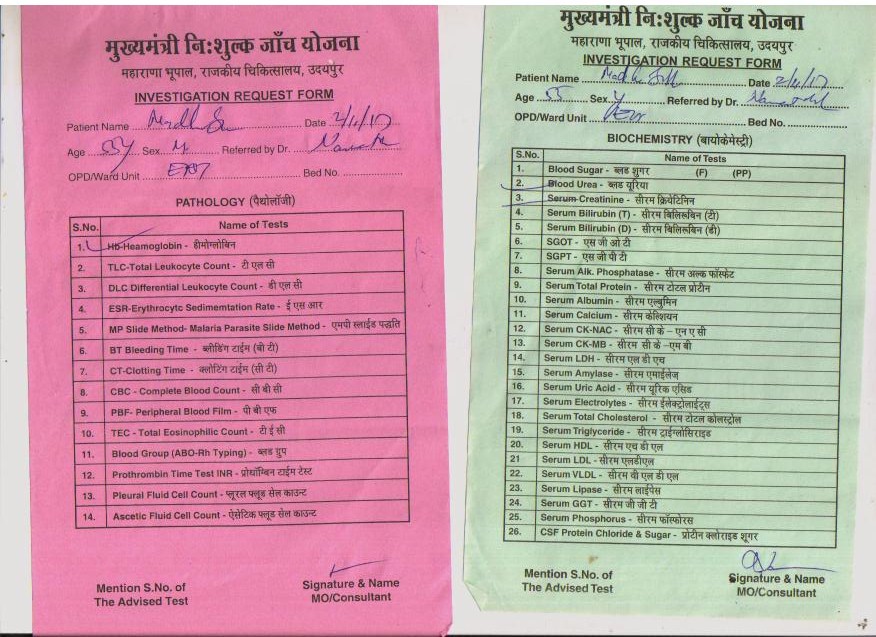 मुख्यमंत्री निःशुल्क जाँच योजना
महाराणा भूपाल, राजकीय चिकित्सालय, उदयपुर
INVESTIGATION REQUEST FORM
Patient Name Date 2/4/17
Age 55y Sex Referred by Dr.
OPD/Ward Unit Bed No.
PATHOLOGY (पैथोलॉजी)
S.No. Name of Tests
1. Hb-Heamoglobin - हीमोग्लोबिन
2. TLC-Total Leukocyte Count - टी एल सी
3. DLC Differential Leukocyte Count - डी एल सी
4. ESR-Erythrocyte Sedimemtation Rate - ई एस आर
5. MP Slide Method- Malaria Parasite Slide Method - एमपी स्लाईड पद्धति
6. BT Bleeding Time - ब्लीडिंग टाईम (बी टी)
7. CT-Clotting Time - क्लोटिंग टाईम (सी टी)
8. CBC - Complete Blood Count - सी बी सी
9. PBF- Peripheral Blood Film - पी बी एफ
10. TEC - Total Eosinophilic Count - टी ई सी
11. Blood Group (ABO-Rh Typing) - ब्लड ग्रुप
12. Prothrombin Time Test INR - प्रोथॉम्बिन टाईम टेस्ट
13. Pleural Fluid Cell Count - प्लूरल फ्लूड सेल काउन्ट
14. Ascetic Fluid Cell Count - ऐसेटिक फ्लूड सेल काउन्ट
Mention S.No. of
The Advised Test
Signature & Name
MO/Consultant
मुख्यमंत्री निःशुल्क जाँच योजना
महाराणा भूपाल, राजकीय चिकित्सालय, उदयपुर
INVESTIGATION REQUEST FORM
Patient Name Date 2/4/17
Age 55 Sex Referred by Dr.
OPD/Ward Unit Bed No.
BIOCHEMISTRY (बायोकेमेस्ट्री)
S.No. Name of Tests
1. Blood Sugar - ब्लड शुगर (F) (PP)
2. Blood Urea - ब्लड यूरिया
3. Serum Creatinine - सीरम क्रियेटिनिन
4. Serum Bilirubin (T) - सीरम बिलिरूबिन (टी)
5. Serum Bilirubin (D) - सीरम बिलिरूबिन (डी)
6. SGOT - एस जी ओ टी
7. SGPT - एस जी पी टी
8. Serum Alk. Phosphatase - सीरम अल्क फॉस्फेट
9. Serum Total Protein - सीरम टोटल प्रोटीन
10. Serum Albumin - सीरम एल्बुमिन
11. Serum Calcium - सीरम केल्शियन
12. Serum CK-NAC - सीरम सी के – एन ए सी
13. Serum CK-MB - सीरम सी के –एम बी
14. Serum LDH - सीरम एल डी एच
15. Serum Amylase - सीरम एमाईलेज
16. Serum Uric Acid - सीरम यूरिक एसिड
17. Serum Electrolytes - सीरम ईलेक्ट्रोलाईट्स
18. Serum Total Cholesterol - सीरम टोटल कोलस्ट्रोल
19. Serum Triglyceride - सीरम ट्राईग्लोसिराइड
20. Serum HDL - सीरम एच डी एल
21 Serum LDL - सीरम एलडीएल
22. Serum VLDL - सीरम वी एल डी एल
23. Serum Lipase - सीरम लाईपेस
24. Serum GGT - सीरम जी जी टी
25. Serum Phosphorus - सीरम फॉस्फोरस
26. CSF Protein Chloride & Sugar - प्रोटीन क्लोराइड शूगर
Mention S.No. of
The Advised Test
Signature & Name
MO/Consultant